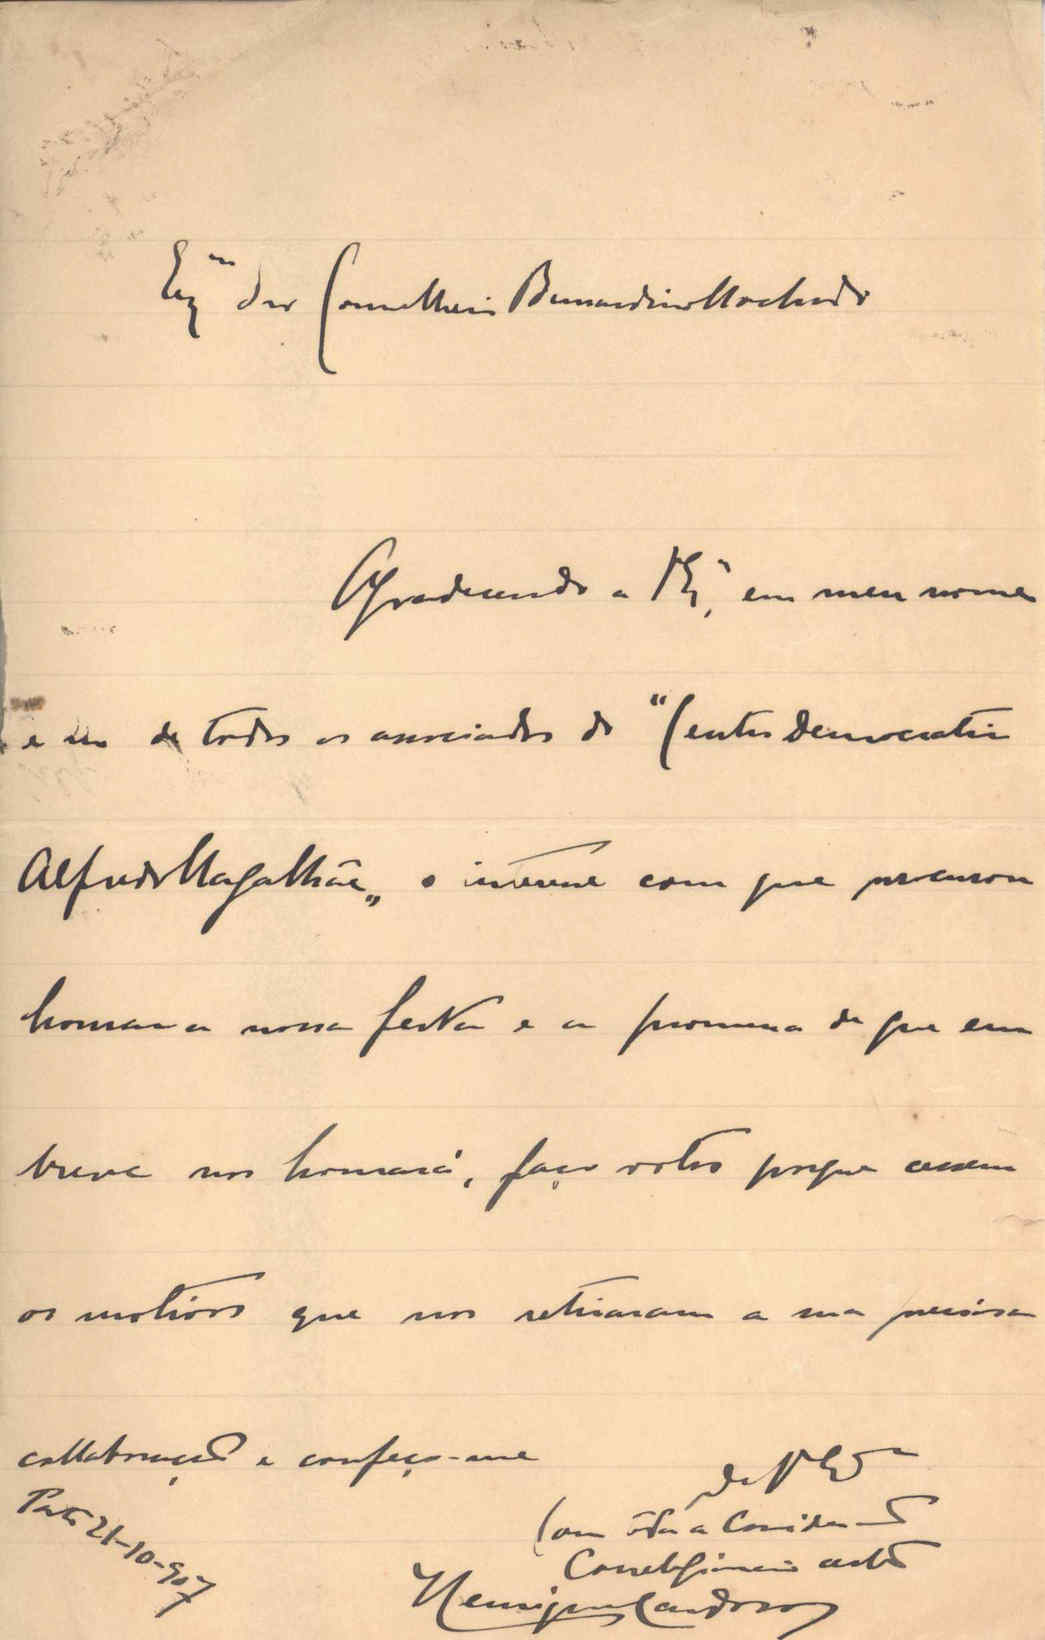 Exmo Snr Conselheiro Bernardino Machado
Agradecendo a V. Exa, em meu nome
e no de todos os associados do "Centro Democratico
Alfredo Magalhães„ o interesse com que procurou
honrar a nossa festa e a promessa de que em
breve nos honrará, faço votos porque cessem
os motivos que nos retiraram a sua preciosa
collaboração e confeço-me
De V. Exa
Com toda a Consideração
Correligionario
Henrique Cardoso
Porto 21-10-907